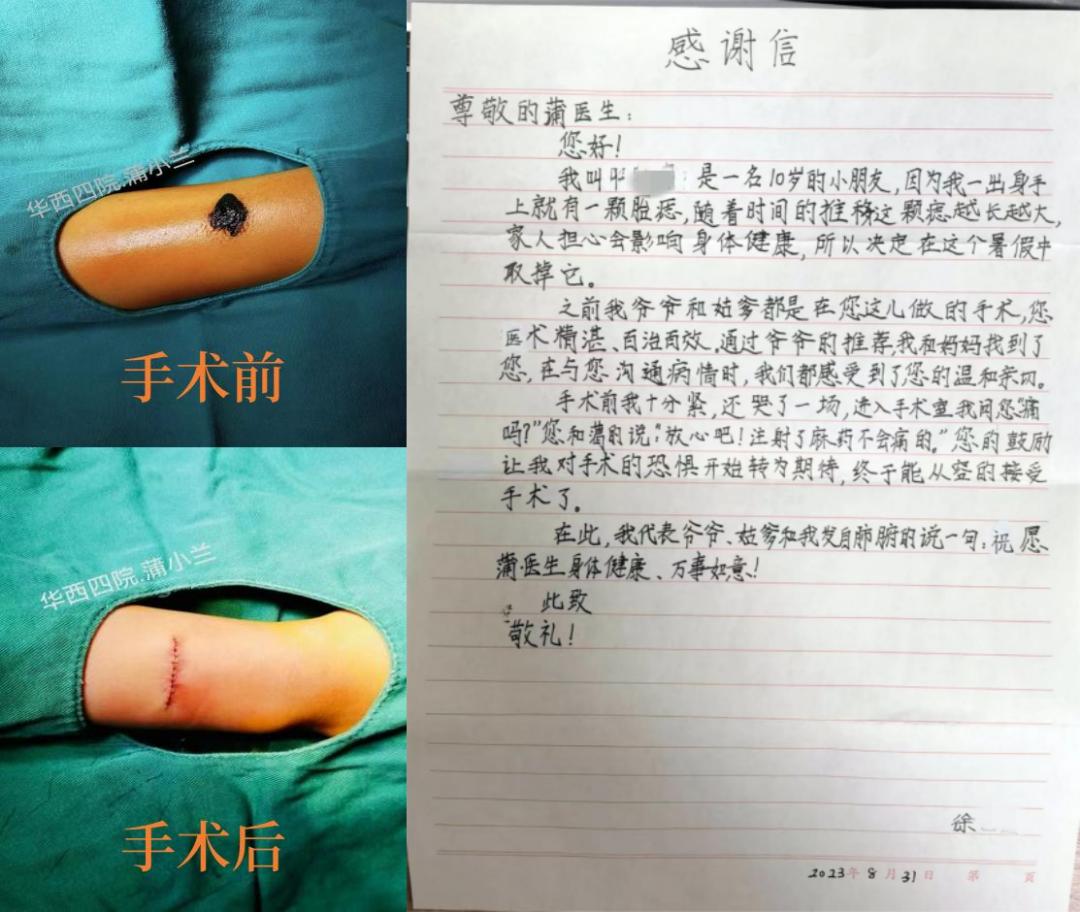 华西四院.蒲小兰
手术前
华西四院.蒲小兰
手术后
感谢信
尊敬的蒲医生：
您好！
我叫 是一名10岁的小朋友，因为我一出身手
上就有一颗胎痣，随着时间的推移这颗痣越长越大，
家人担心会影响身体健康，所以决定在这个暑假中
取掉它。
之前我爷爷和姑爹都是在您这儿做的手术，您
医术精湛、百治百效，通过爷爷的推荐，我和妈妈找到了
您，在与您沟通病情时，我们都感受到了您的温和亲切。
手术前我十分紧，还哭了一场，进入手术室我问您“痛
吗？”您和蔼的说：“放心吧！注射了麻药不会痛的。”您的鼓励
让我对手术的恐惧开始转为期待，终于能从容的接受
手术了。
在此，我代表爷爷、姑爹和我发自肺腑的说一句：祝愿
蒲医生身体健康、万事如意！
此致
敬礼！
徐
2023年8月31日 第 页